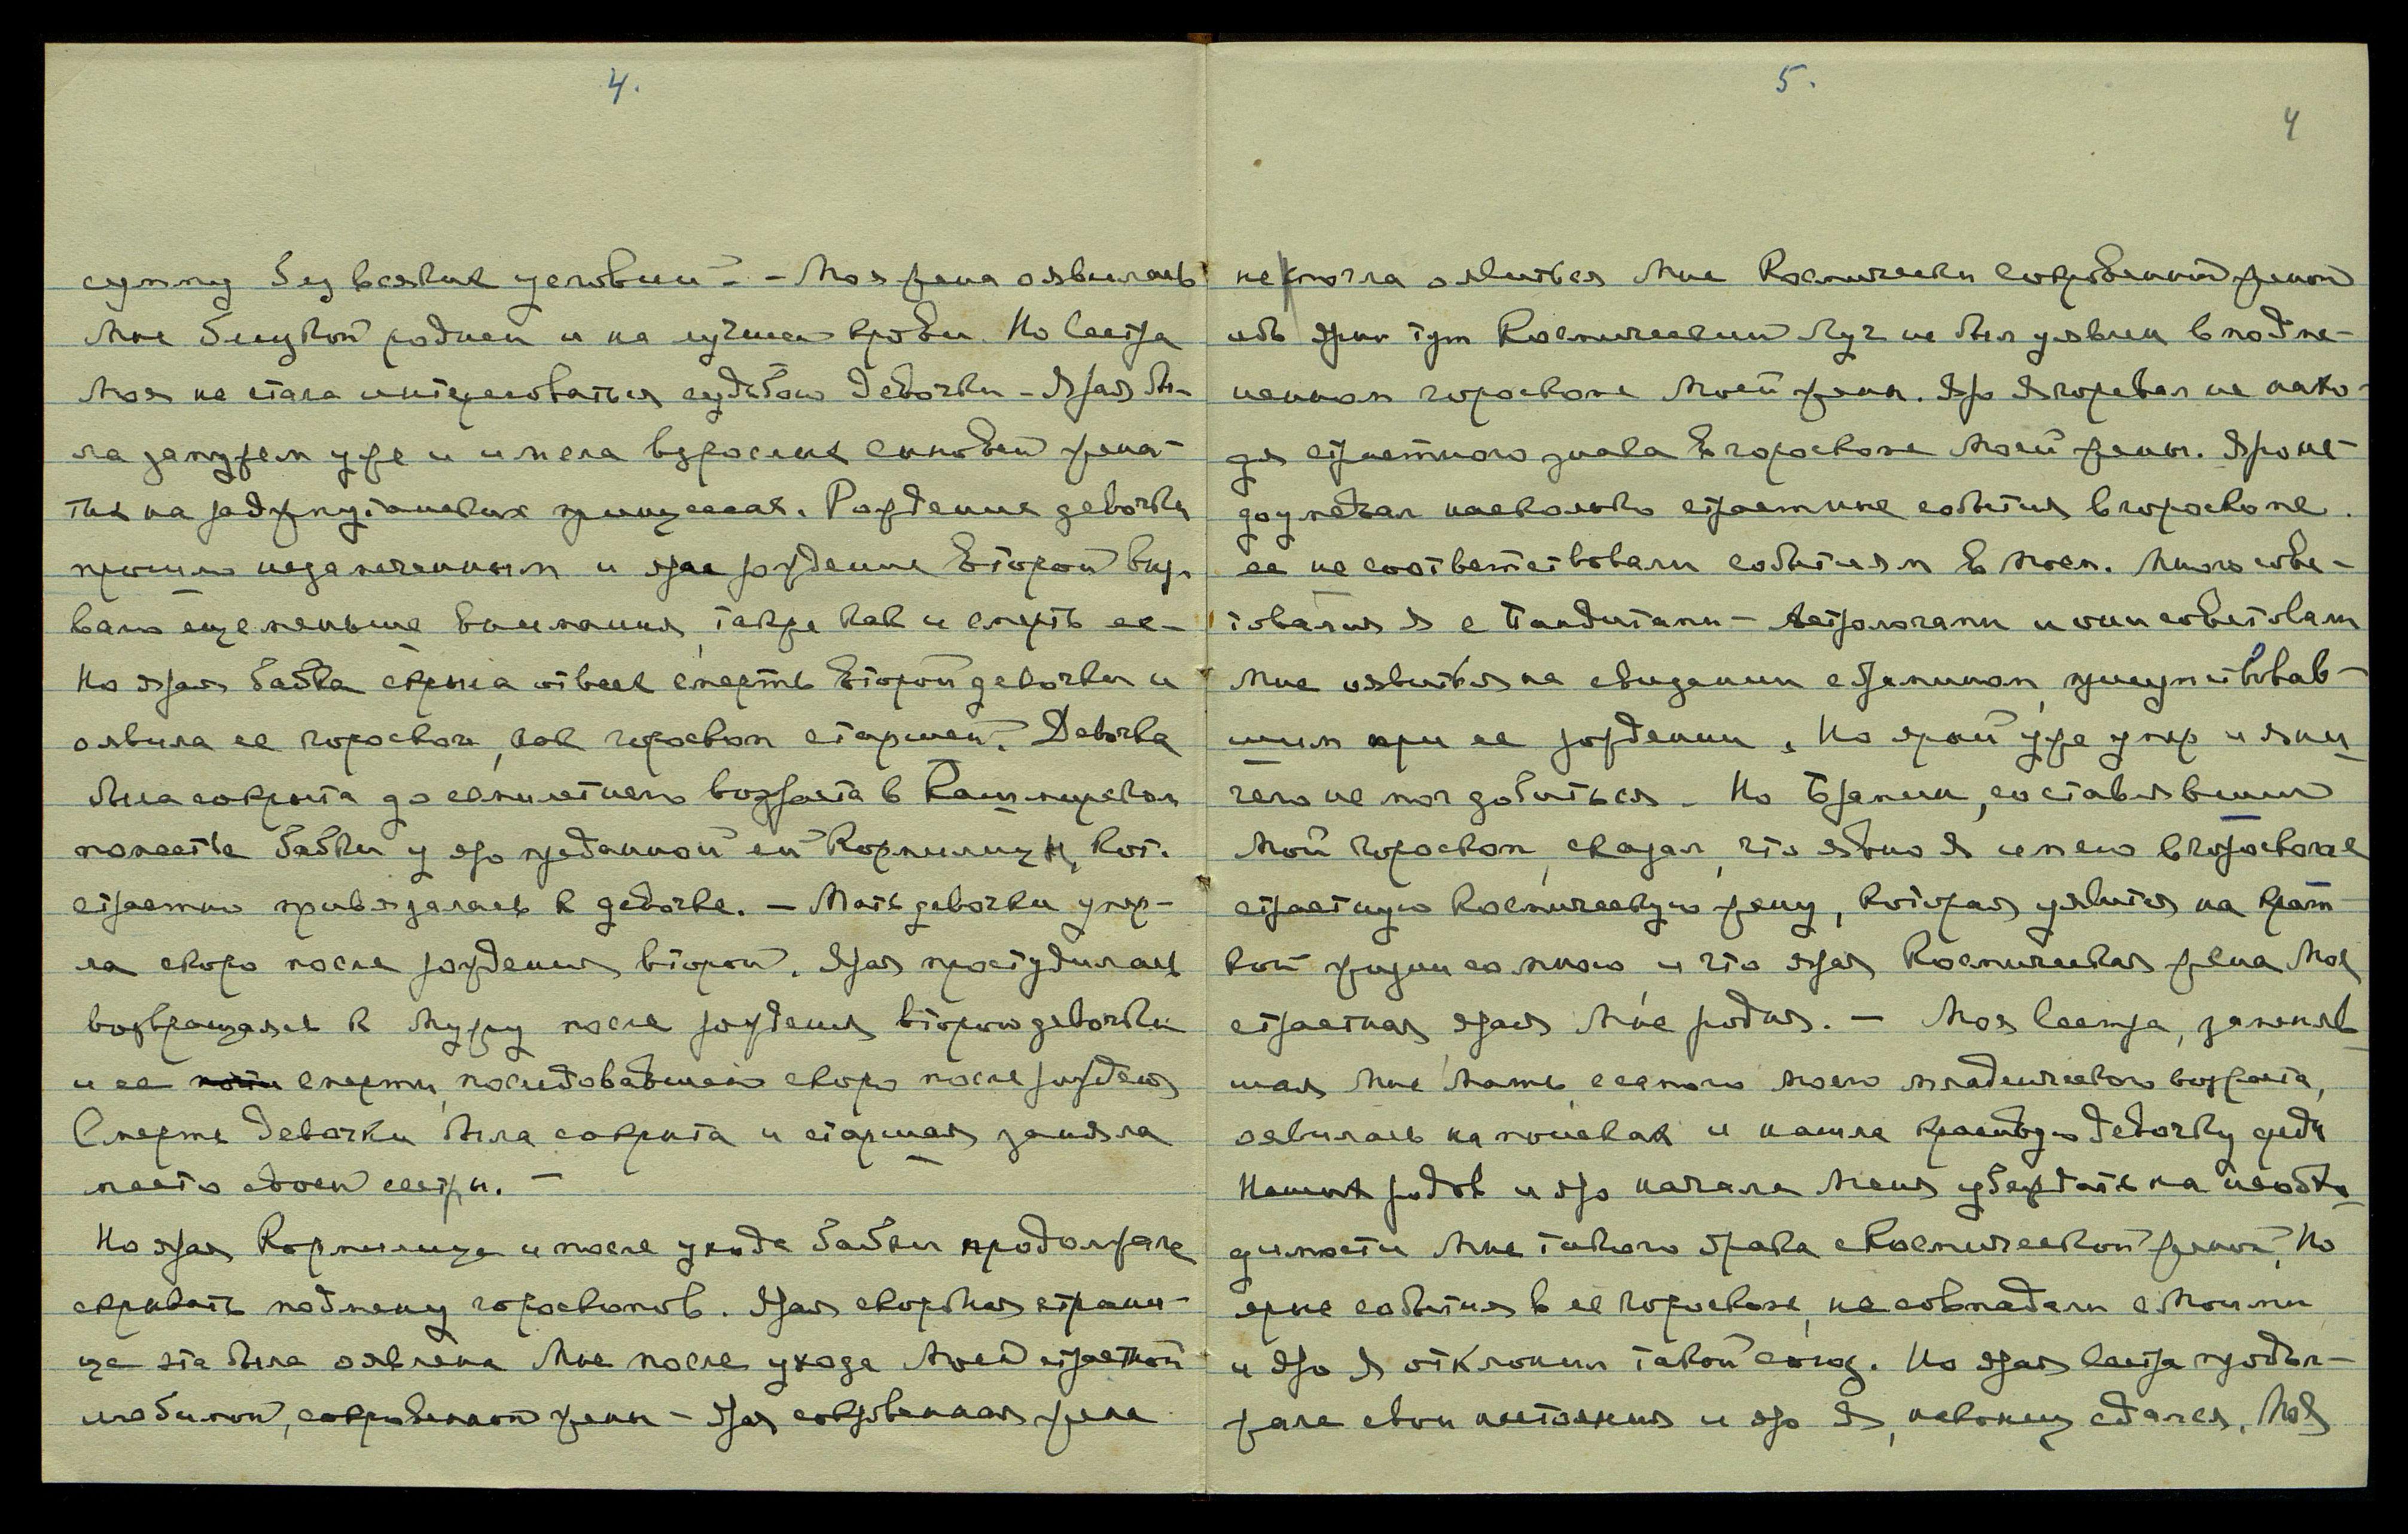 4.
сумму без всяких условий. - Моя жена оявилась
Мне близкой родней и на лучшей крови. Но Сестра
Моя не стала интересоваться судьбою девочки - Ярая бы-
ла замужем уже и имела взрослых сыновей жена-
тых на раджпутанских принцессах. Рождение девочки
прошло незамеченным и ярое рождение Второй выз-
вало еще меньше внимания, также как и смерть ее -
Но ярая бабка скрыла от всех смерть Второй девочки и
оявила ее гороскоп, как гороскоп старшей. Девочка
была сокрыта до семилетнего возраста в Кашмирском
поместье бабки у яро преданной ей Кормилицы, кот.
страстно привязалась к девочке. - Мать девочки умер-
ла скоро после рождения второй. Ярая простудилась
возвращаясь к Мужу после рождения второй девочки
и ее смерти, последовавшей скоро после рождения
Смерть девочки была сокрыта и старшая заняла
место своей сестры. -
Но ярая Кормилица и после ухода бабки продолжала
скрывать подмену гороскопов. Ярая скорбная страни-
ца эта была оявлена Мне после ухода Моей страстной
любимой, сокровенной жены - Ярая сокровенная жена
5.
4
не могла оявиться Мне Космически сокровенной женой
ибо ярый тут Космический Луч не был уявлен в подме-
ненном гороскопе Моей жены. Яро Я горевал не нахо-
дя страстного знака в гороскопе Моей жены. Яро не-
доумевал насколько страстные события в гороскопе
ее не соответствовали событиям в моем. Много сове-
товался Я с Пандитами - Астрологами и они советовали
Мне оявиться на свидании с Брамином, присутствовав-
шим при ее рождении. Но ярый уже умер и Я ни-
чего не мог добиться. Но Брамин, составлявший
Мой гороскоп, сказал, что явно Я имею в гороскопе
страстную Космическую жену, которая уявится на крат-
кой жизни со мною и что ярая Космическая жена Моя
страстная ярая Мне родня. - Моя Сестра, заменяв-
шая Мне Мать с самого моего младенческого возраста,
оявилась на поисках и нашла красивую девочку среди
Наших родов и яро начала Меня убеждать на необхо-
димости Мне такого брака с Космической женой, Но
ярые события в ее гороскопе, не совпадали с Моими
и яро Я отклонил такой союз. Но ярая Сестра продол-
жала свои настояния и яро Я, наконец сдался. Моя